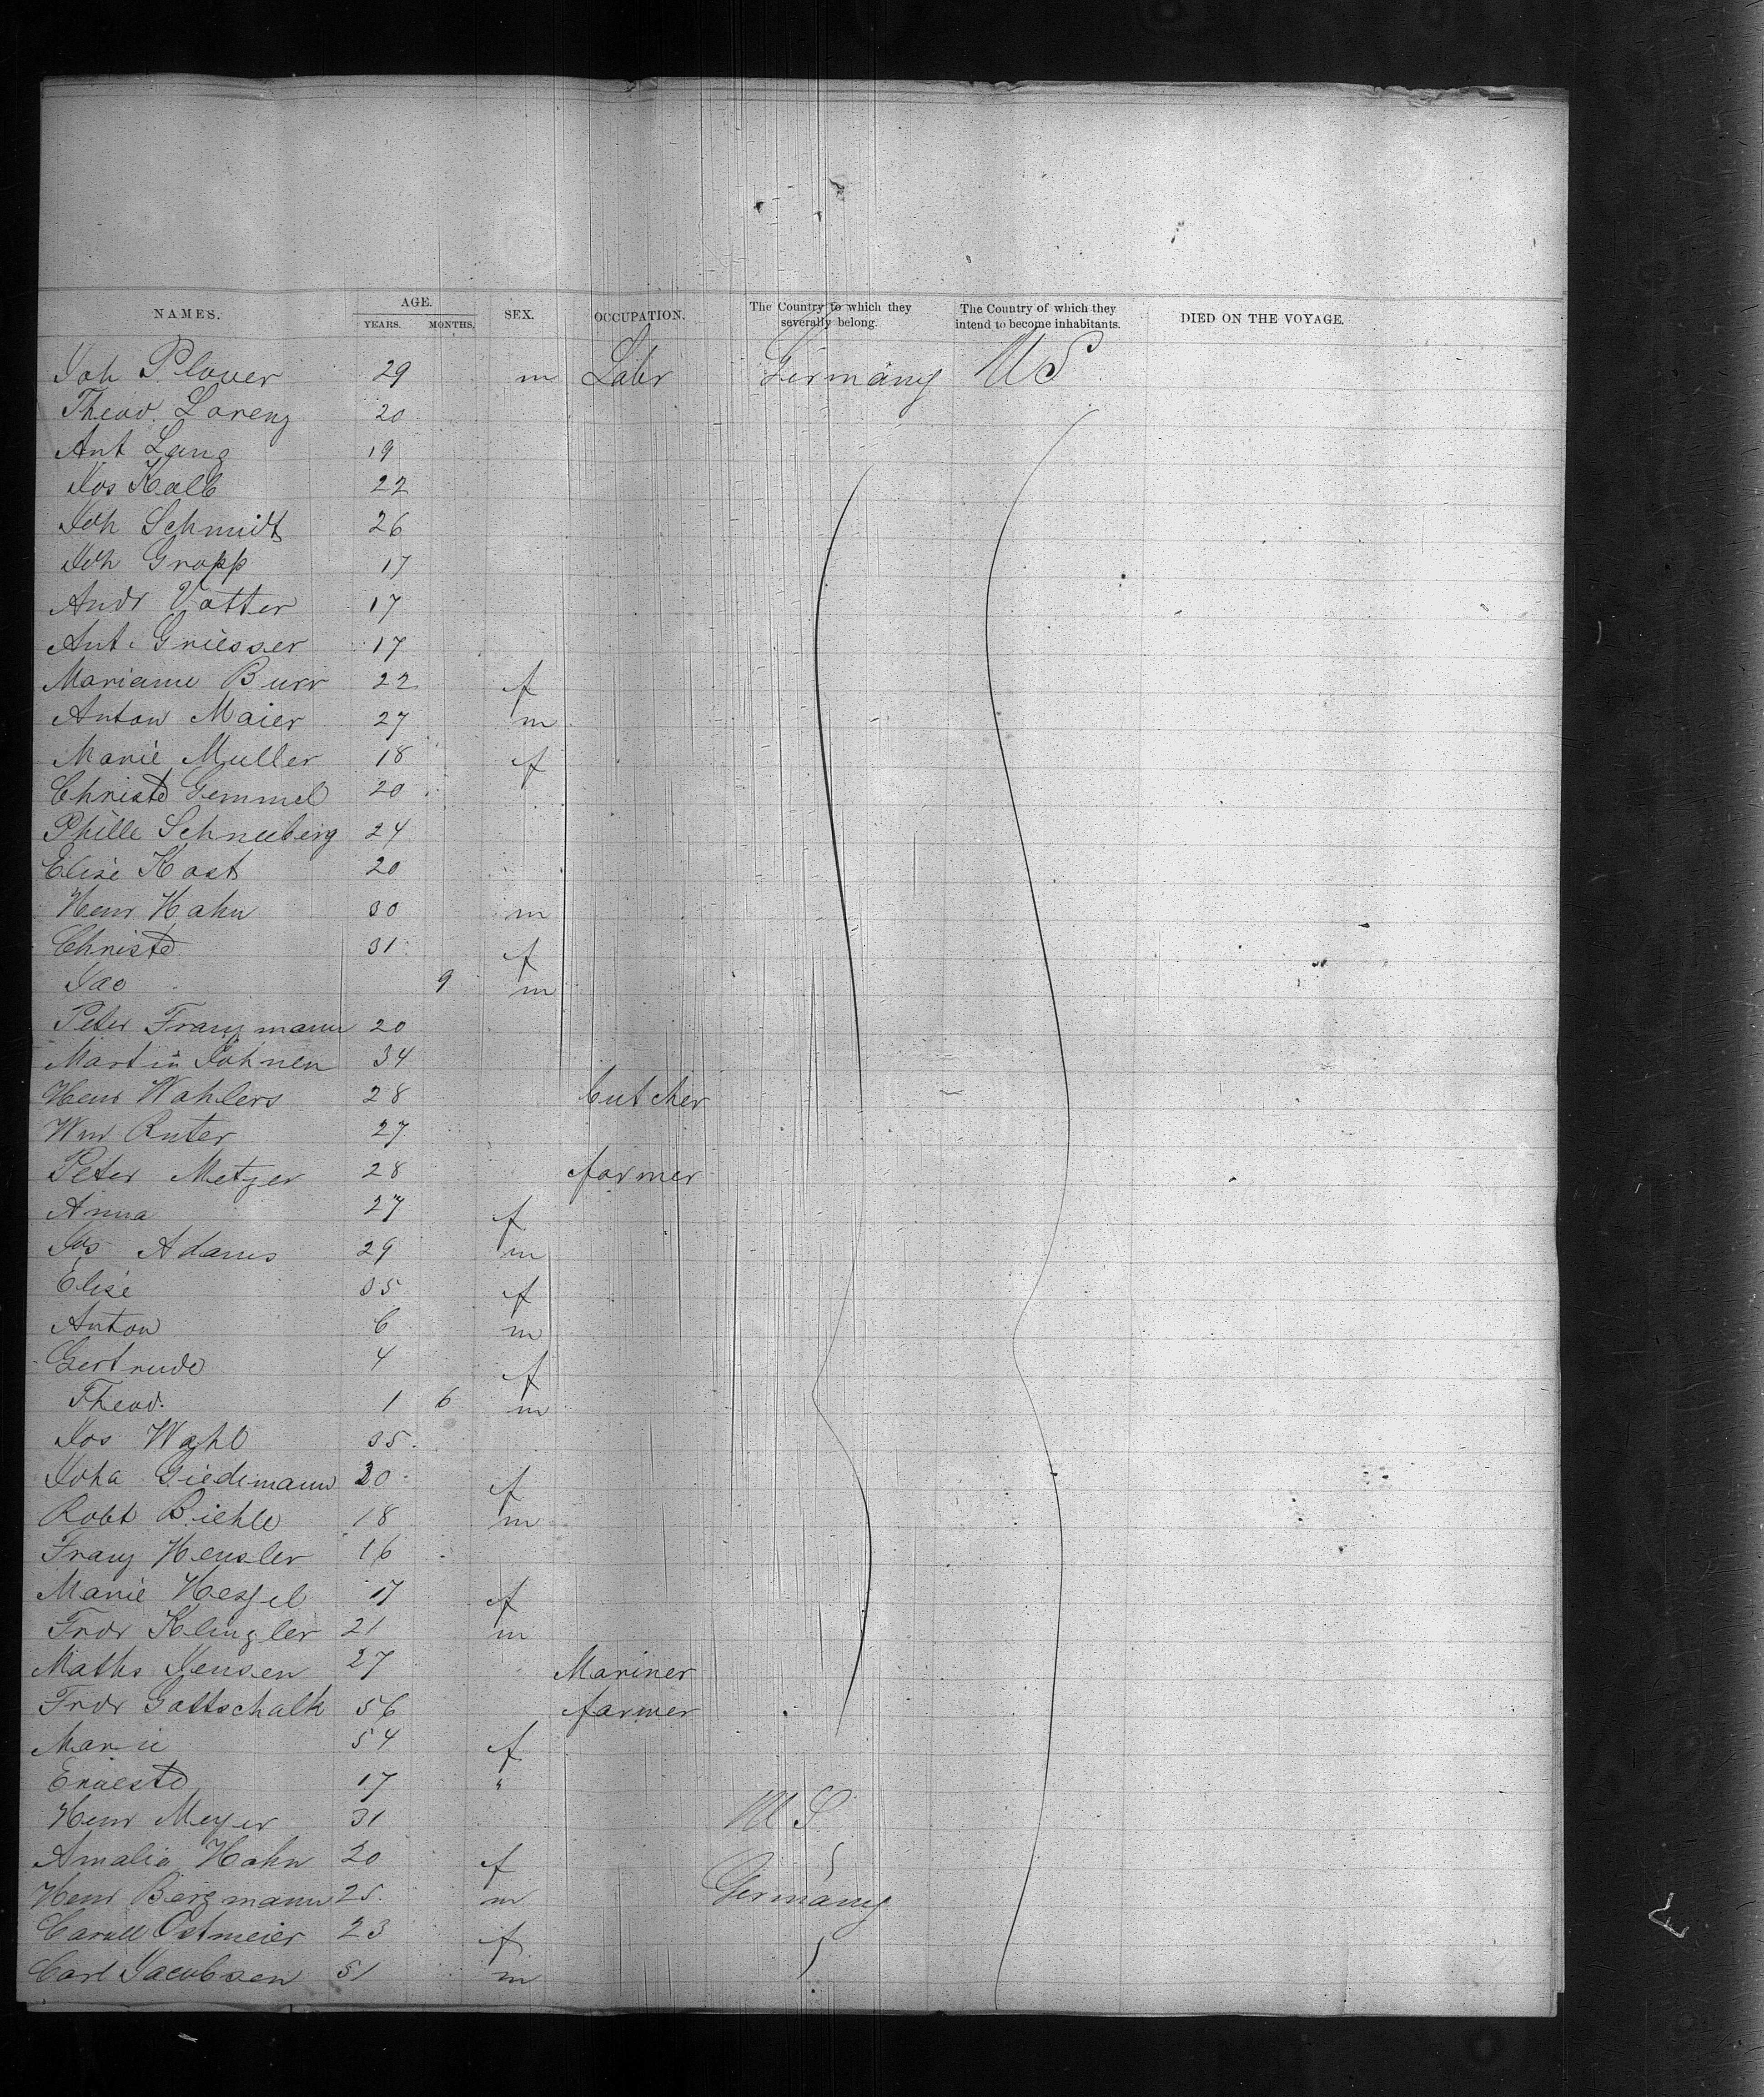 NAMES. AGE. SEX. OCCUPATION. The Country to which they severally belong. The Country of which they intend to become inhabitants. DIED ON THE VOYAGE.
YEARS. MONTHS.
Joh Plover 29 m Labr Germany US
Theod. Lorenz 20
Ant Lang 19
Jos Kalb 22
Joh Schmidt 26
Joh Gropp 17
Andr Vatter 17
Ant. Griesser 17
Marianne Burr 22 f
Anton Maier 27 m
Marie Muller 18 f
Christe Gemmel 20
Phille Schneeberg 24
Elise Kast 20
Henr Hahn 30 m
Christe 31 f
Jac 9 m
Peter Franzmann 20
Martin Johnen 34
Henr Wahlers 28 butcher
Wm Ruter 27
Peter Metzer 28 farmer
Anna 27 f
Jos Adams 29 m
Elise 35 f
Anton 6 m
Gertrude 4 f
Theod. 1 6 m
Jos Wahl 35
Joha Giedemann 20 f
Robt Biehle 18 m
Franz Hensler 16
Marie Hessel 17 f
Frdr Klingler 21 m
Maths Jensen 27 Mariner
Frdr Gottschalk 56 farmer
Marie 54 f
Erneste 17 "
Henr Meyer 31 U S.
Amalia Hahn 20 f
Henr Bergmann 25 m Germany
Ostmeier 23 f
Carl Jacobsen 51 m